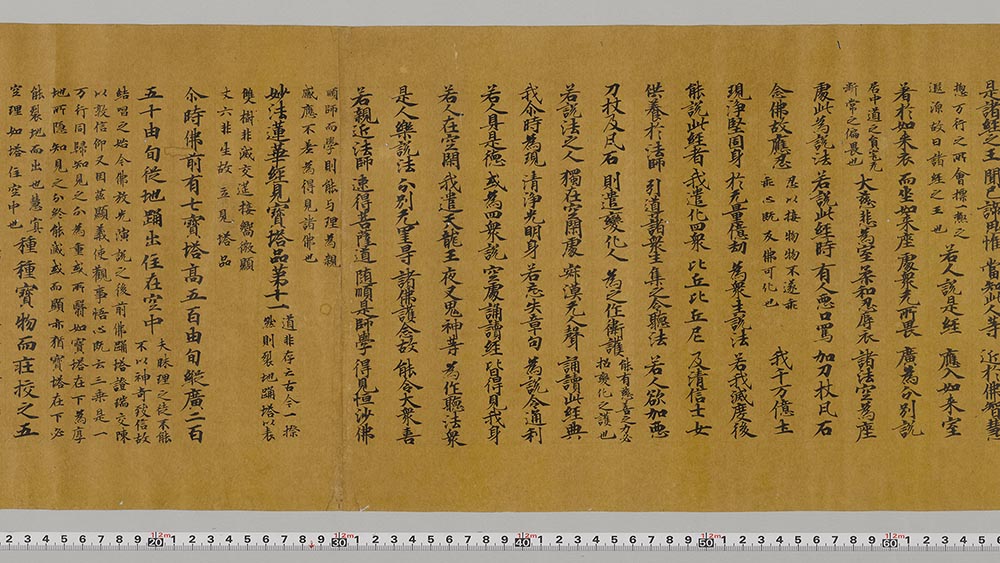 是諸經之王 聞已諦思惟 當知此人等 近於佛智慧
捴万行之所會摽
遐源故曰諸經之王也 若人說是經 應入如来室
著於如来衣 而坐如来座 處衆无所畏 廣為分別說
居中道之 无
斷常之偏畏也 大慈悲為室 柔和忍辱衣 諸法空為座
處此為說法 若說此經時 有人惡口罵 加刀杖凡石
念佛故應忍 忍以接物物不遂乖
乖心既及佛可化也 我千万億土
現淨堅固身 於无量億劫 為衆生說法 若我滅度後
能說此經者 我遣化四衆 比丘比丘尼 及清信士女
供養於法師 引道諸衆生 集之令聽法 若人欲加惡
刀杖及凡石 則遣變化人 為之作衛護 能有慈善之力必
招變化之護也
若說法之人 獨在空閑處 寂漠无人聲 誦讀此經典
我尒時為現 清淨光明身 若忘失章句 為說令通利
若人具是德 或為四衆說 空處誦讀經 皆得見我身
若人在空閑 我遣天龍王 夜叉鬼神等 為作聽法衆
是人樂說法 分別无罣导 諸佛護念故 能令大衆喜
若親近法師 速得菩薩道 随順是師學 得見恒沙佛
順師而學則能与理為親
感應不差為得見諸佛也
妙法蓮華經見寶塔品第十一 道非存亡古今一揆
然則裂地踊塔以表
雙樹非滅交送接嚮微顯
丈六非生故云見塔品
尒時佛前有七寶塔高五百由旬縱廣二百
五十由旬從地踊出住在空中 夫昧理之徒不能
不以神奇致信故
結唱之始令佛放光演說之後前佛踊塔證瑞交陳
以敦信仰又因茲顯義使觀事悟心既云三乗是一
万行同歸知見之分為重或所翳如寶塔在下為厚
地所隱知見之分終能滅或而顯亦猶寶塔在下必
能裂地而出也慧冥
空理如塔住空中也 種種寶物而莊挍之五
2 3 4 5 6 7 8 9 20 1 2 3 4 5 6 7 8 9 30 1 2 3 4 5 6 7 8 9 40 1 2 3 4 5 6 7 8 9 50 1 2 3 4 5 6 7 8 9 60 1 2 3 4 5 6